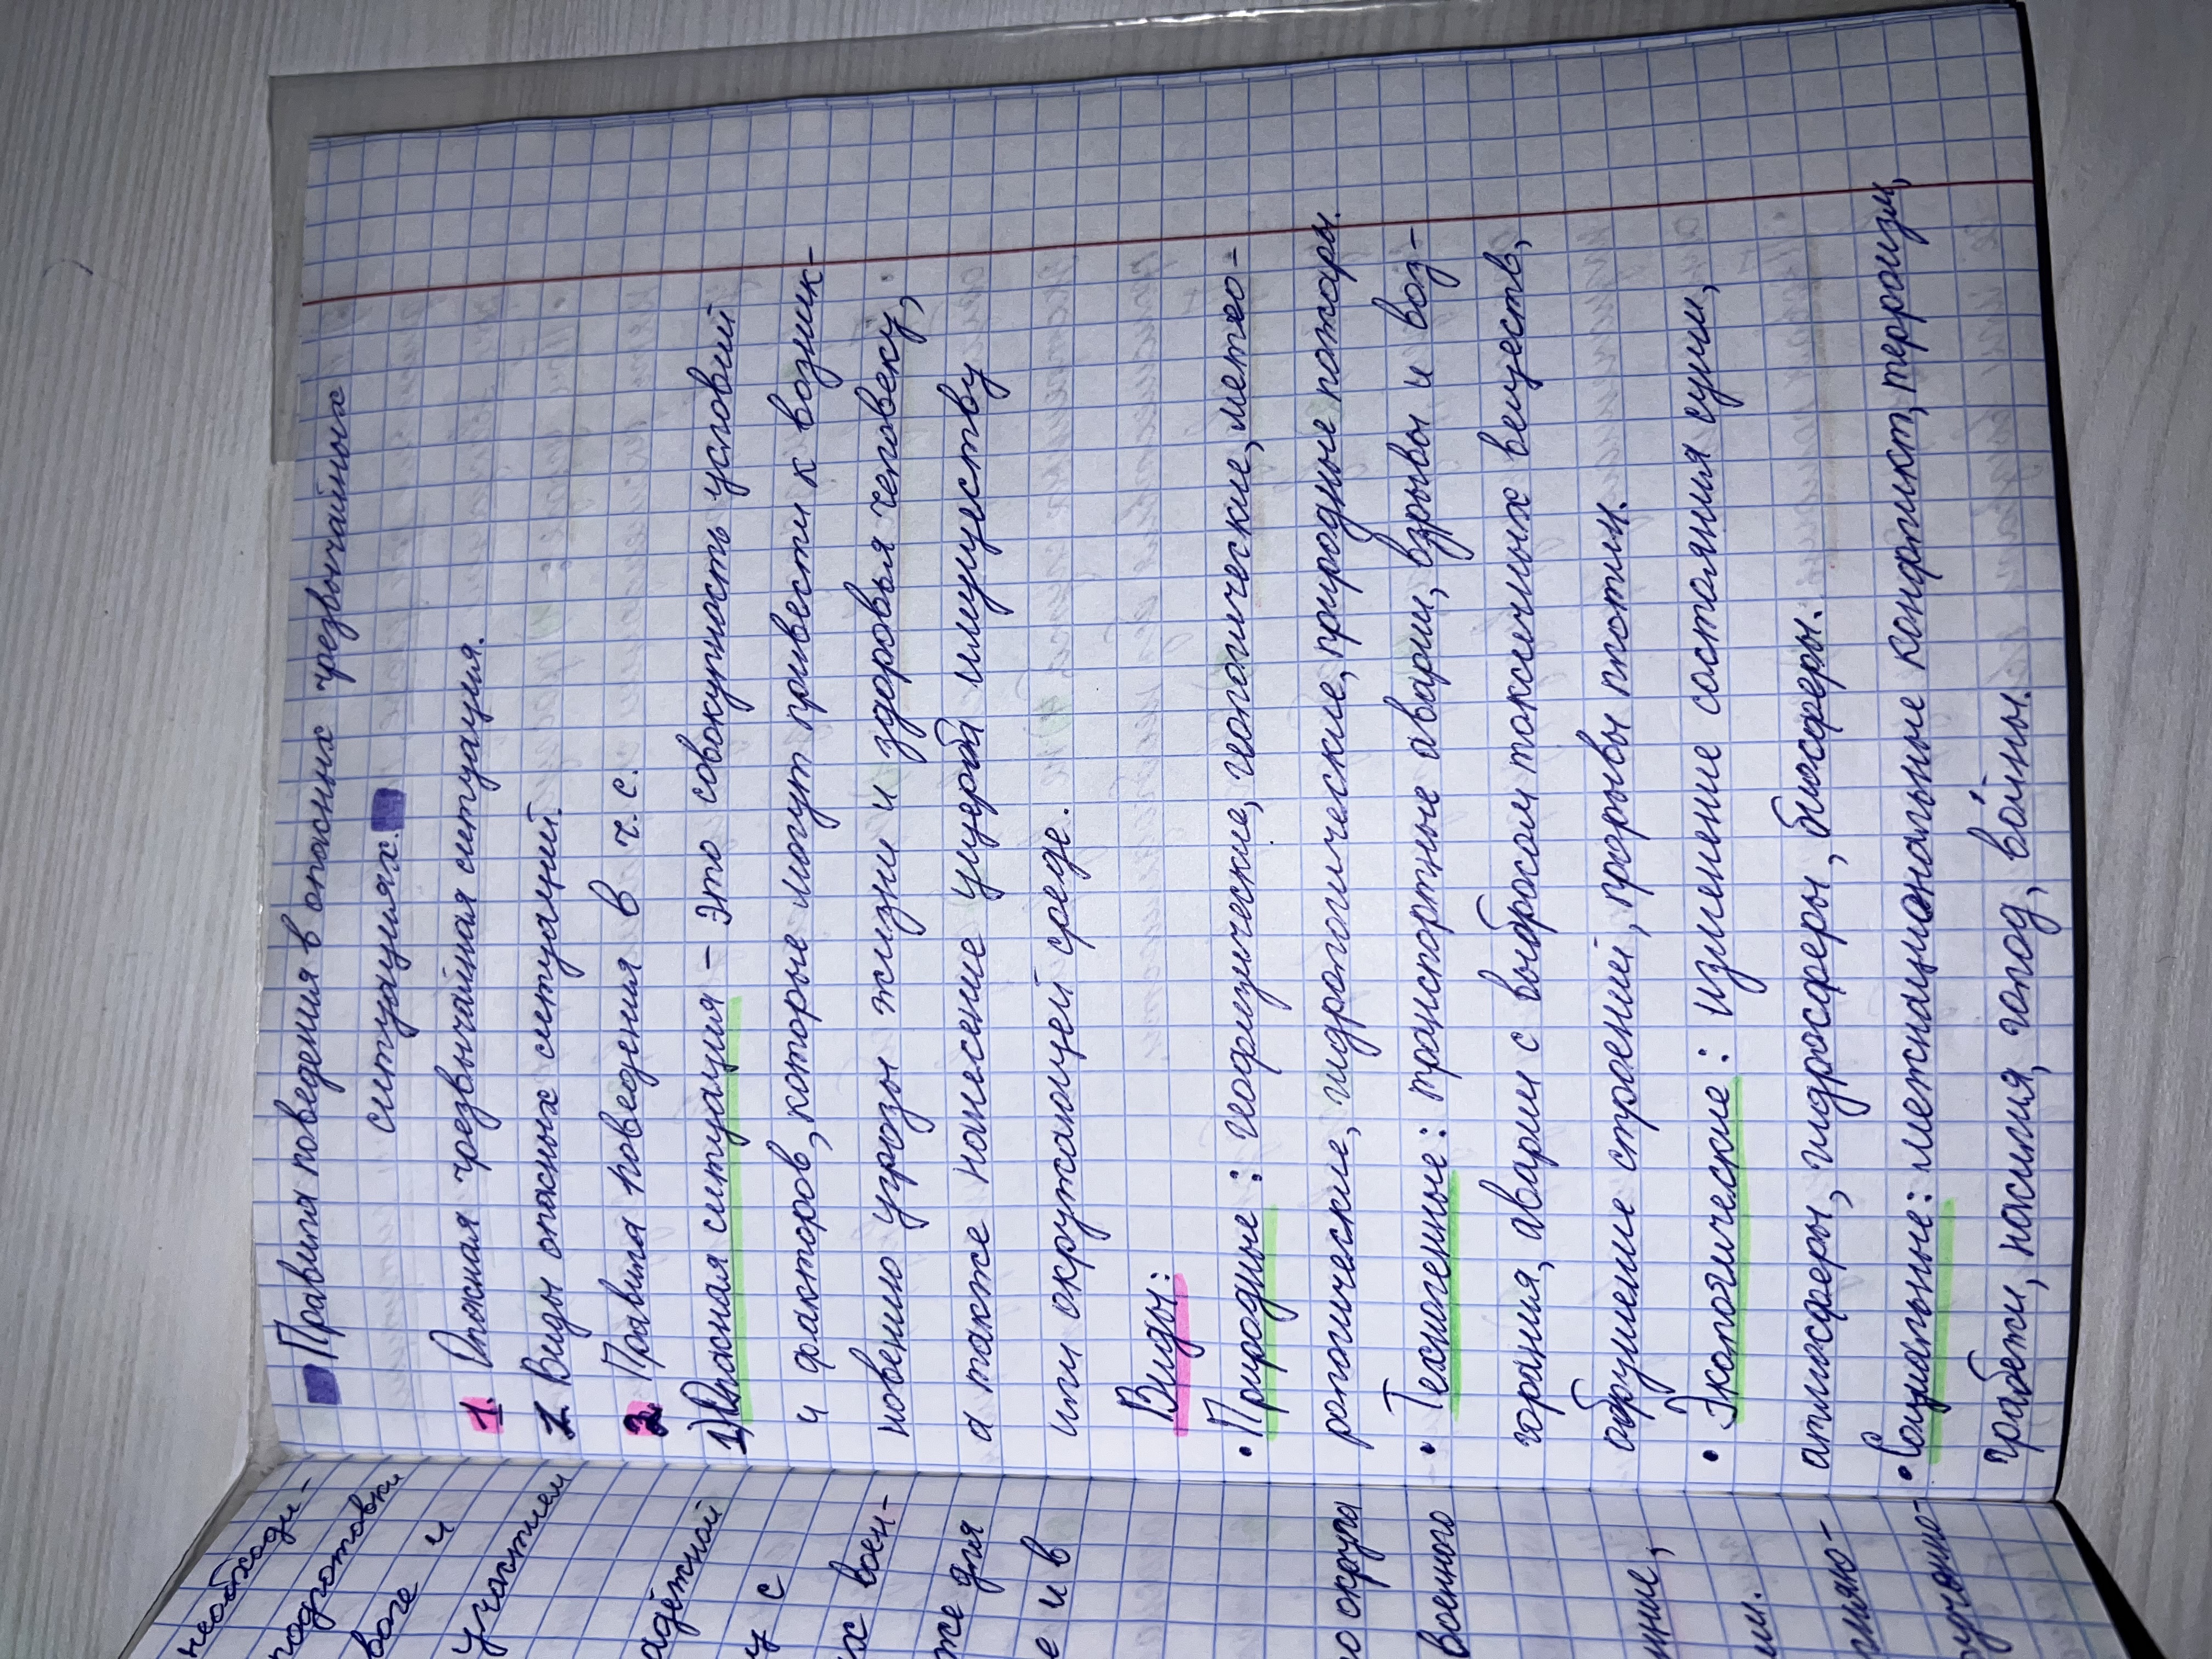 Правила поведения в опасных чрезвычайных
ситуациях.
1. Опасная чрезвычайная ситуация.
2. Виды опасных ситуаций.
3. Правила поведения в ч.с.
1) Опасная ситуация – это совокупность условий
и факторов, которые могут привести к возник-
новению угрозы жизни и здоровья человеку,
а также нанесение ущерба имуществу
или окружающей среде.
Виды:
• Природные: геофизические, геологические, метео-
рологические, гидрологические, природные пожары.
• Техногенные: транспортные аварии, взрывы и воз-
горания, аварии с выбросом токсичных веществ,
обрушение строений, прорывы плотин.
• Экологические: изменение состояния суши,
атмосферы, гидросферы, биосферы.
• Социальные: межнациональные конфликт, терроизм,
грабежи, насилия, голод, войны.
необходи-
подготовки
воге и
участием
адёжной
у с
х воен-
же для
е и в
о округа
военного
ние,
ии.